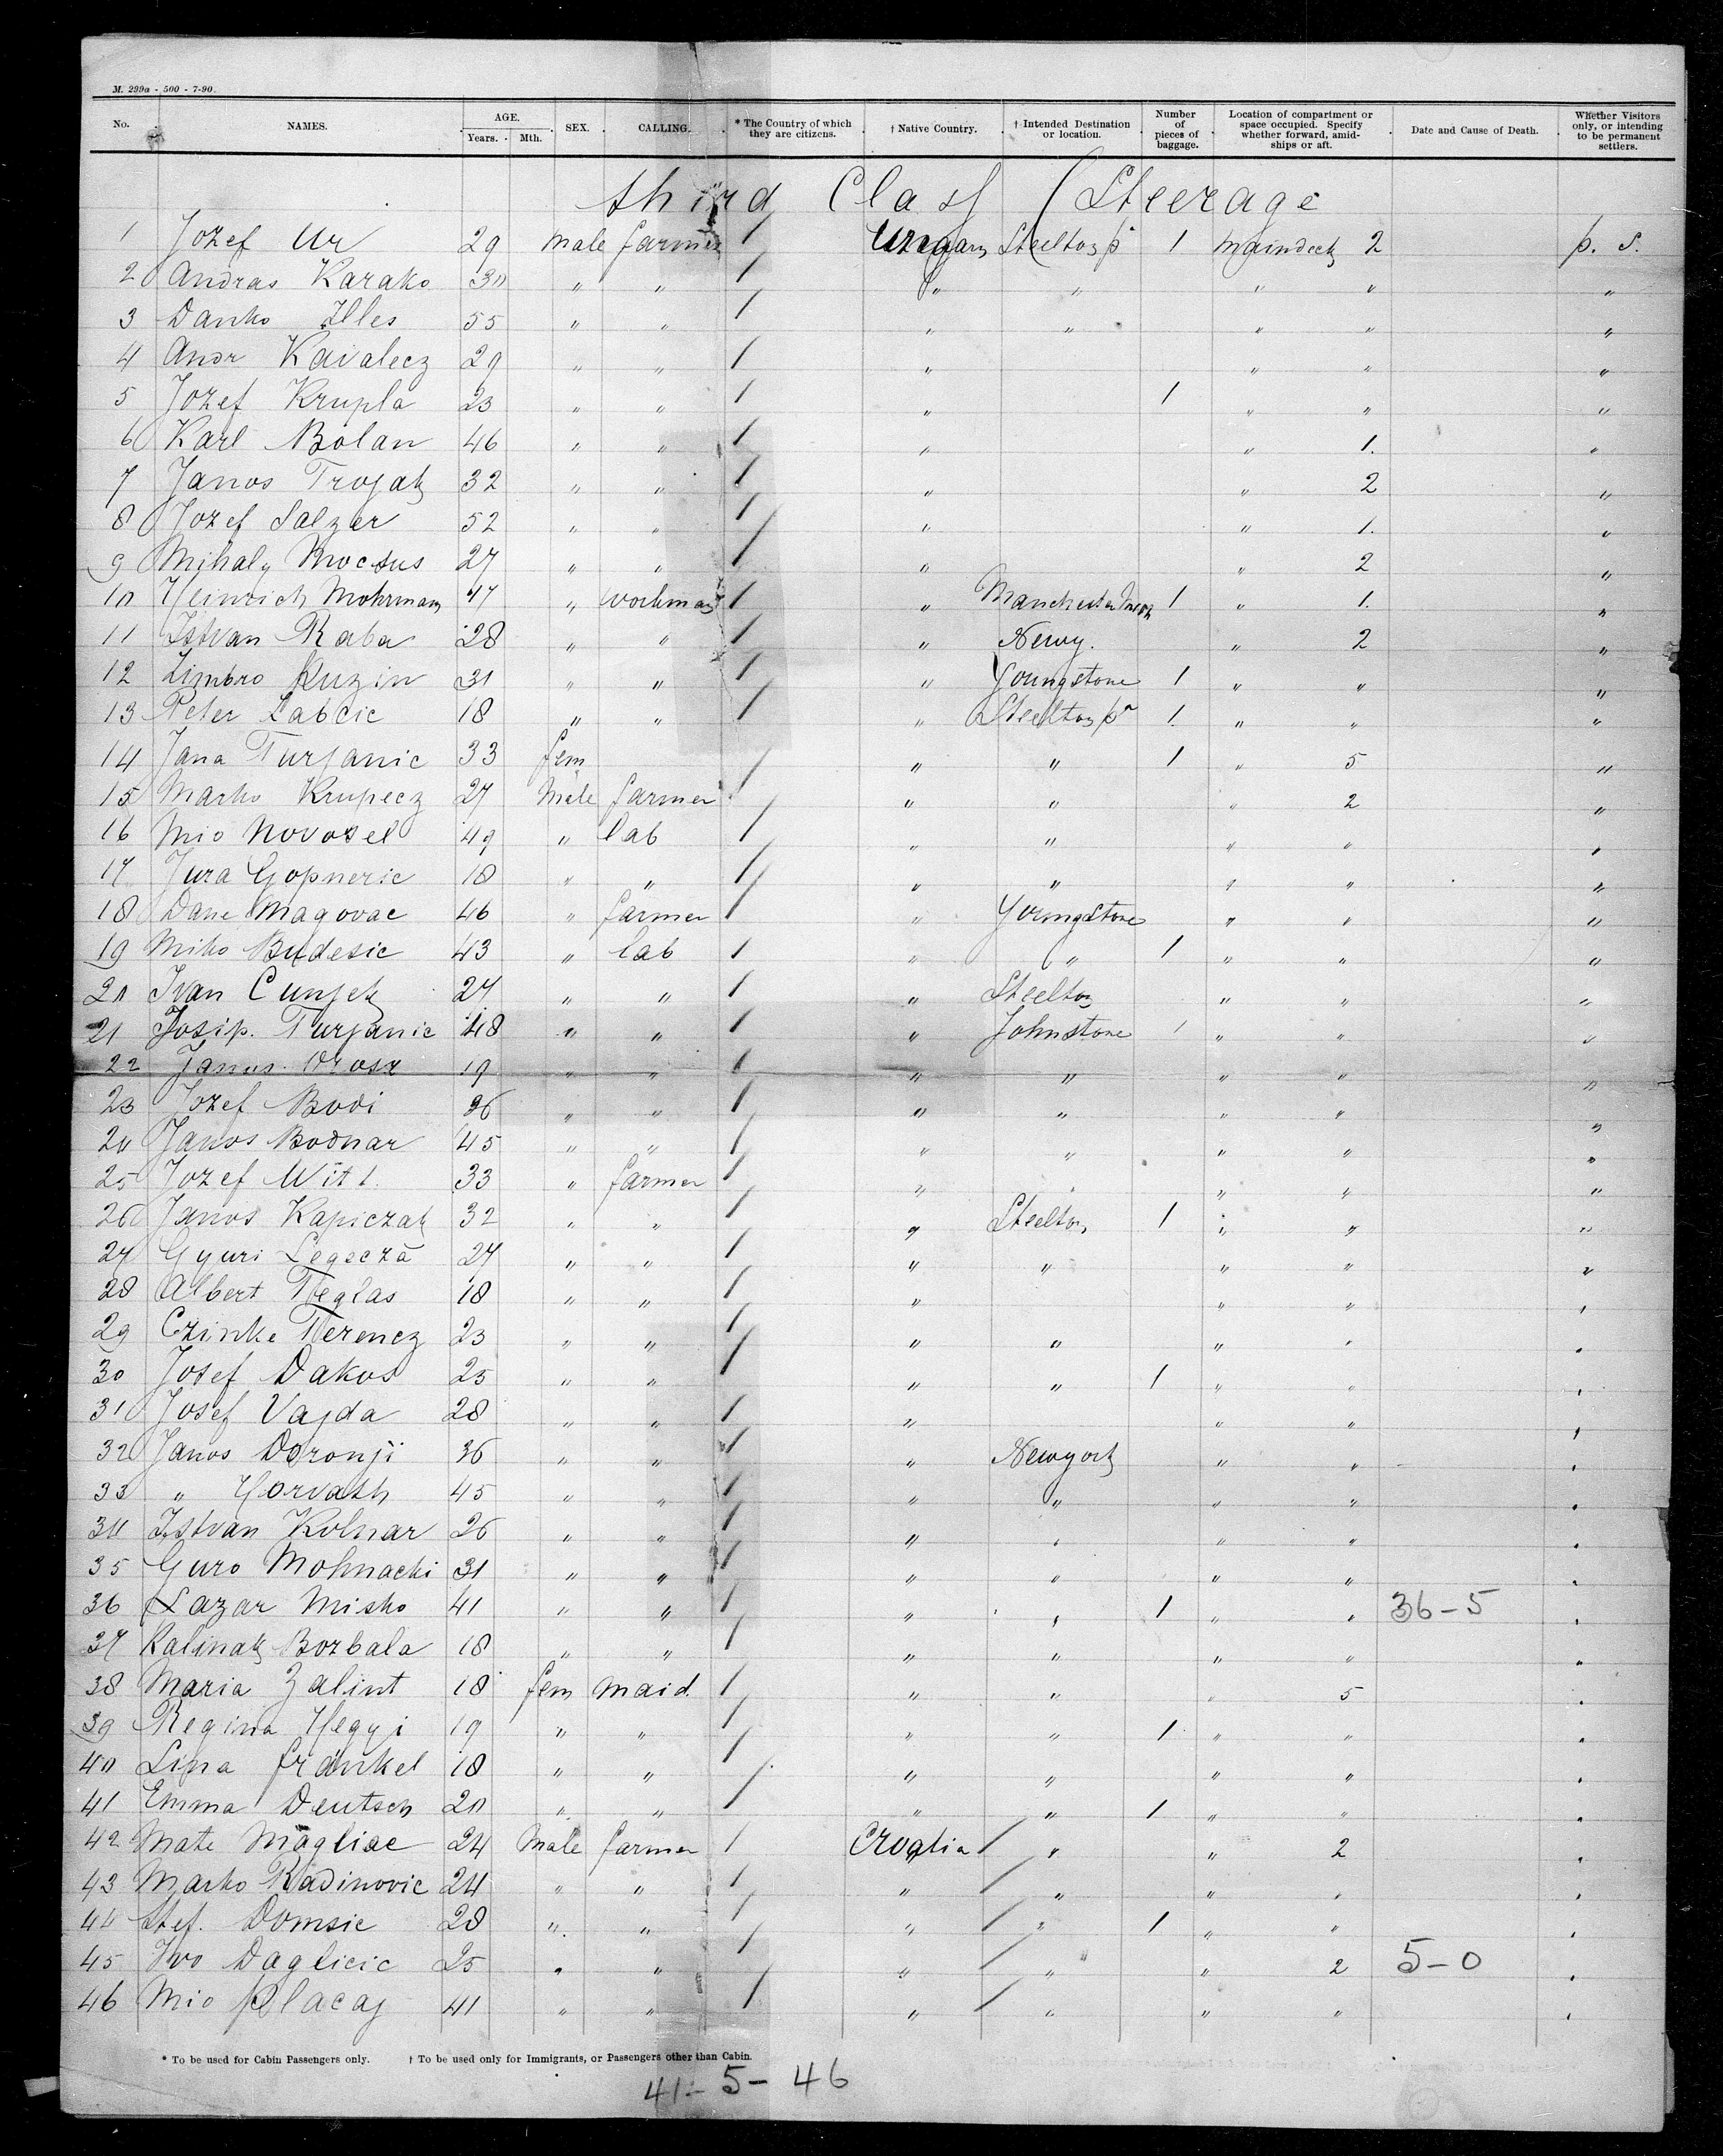 M. 299a - 500 - 7-90.
No. NAMES. AGE. Years. Mth. SEX. CALLING. * The Country of which they are citizens. † Native Country. † Intended Destination or location. Number of pieces of baggage. Location of compartment or space occupied. Specify whether forward, amidships or aft. Date and Cause of Death. Whether Visitors only, or intending to be permanent settlers.
third Class (Steerage
1 Jozef Ur 29 Male farmer / Ungarn Steelton pa 1 Maindeck 2 p. S.
2 Andras Karako 30 " " / " " " " "
3 Danko Illes 55 " " / " " " " "
4 Andr Kavalecz 29 " " / " " " "
5 Jozef Krupla 23 " " / " 1 " " "
6 Karl Bolan 46 " " / " " 1. "
7 Janos Trojak 32 " " / " " 2 "
8 Jozef Salzer 52 " " / " " 1. "
9 Mihaly 27 " " / " " 2 "
10 Heinrich Mohrmann 47 " workman / " Manchester 1 " 1. "
11 Istvan Raba 28 " " / " Newy. " 2 "
12 Zimbro Kuzin 31 " " / " Youngstone 1 " " "
13 Peter Labcic 18 " " / " Steelton pa 1. " " "
14 Jana Turjanic 33 fem / " " 1 " 5 "
15 Marko Krupecz 27 Male farmer / " " " 2 "
16 Mio Novosel 49 " lab / " " " " "
17 Jura Gopneric 18 " " / " " " " "
18 Dane Magovac 46 " farmer / " Youngstone " " "
19 Miko Budesic 43 " lab / " " 1 " " "
20 Ivan Cunjek 27 " " / " Steelton " " "
21 Josip. Turjanic 48 " " / " Johnstone 1 " " "
22 Janos Orosz 19 " " / " " " " "
23 Jozef Bodi 36 " " / " " " " "
24 Janos Bodnar 45 " " / " " " " "
25 Jozef Witt 33 " farmer / " " " " "
26 Janos Kapiczak 32 " " / " Steelton 1 " " "
27 Gyuri Legecza 27 " " / " " " " "
28 Albert Teglas 18 " " / " " " "
29 Czinke Ferencz 23 " " / " " " " "
30 Josef Dakos 25 " " / " " 1 " " "
31 Josef Vajda 28 " " / " " " "
32 Janos Doronji 36 " " / " Newyork " " "
33 " Horvath 45 " " / " " " " "
34 Istvan Kolnar 26 " " / " " " " "
35 Guro Mohnacki 31 " " / " " " " "
36 Lazar Misko 41 " " / " " 1 " " 36-5 "
37 Kalinak Borbala 18 " " / " " " " "
38 Maria Zalint 18 fem maid. / " " " 5 "
39 Regina Hegyi 19 " " / " " 1 " " "
40 Lina Fränkel 18 " " / " " " " "
41 Emma Deutsch 20 " " / " " 1 " " "
42 Mate Magliac 24 Male farmer / Croatia / " " 2 "
43 Marko Radinovic 24 " " / " / " " " "
44 Stef. Domsic 28 " " / " / " 1 " " "
45 Ivo Daglicic 25 " " / " / " " 2 5-0 "
46 Mio Placaj 41 " " / " / " " " "
* To be used for Cabin Passengers only. † To be used only for Immigrants, or Passengers other than Cabin.
41-5-46